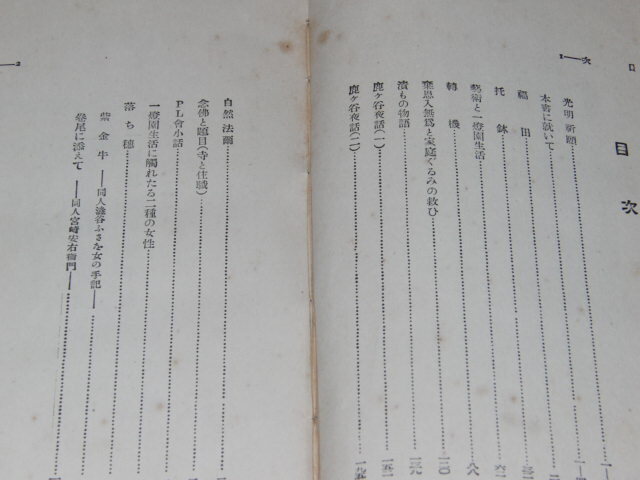 目次
1—次
目次
光明祈願
本書に就いて
福田
托鉢
藝術と一燈園生活
轉機
棄恩入無爲と家庭ぐるみの救ひ
漬もの物語
鹿ケ谷夜話(一)
鹿ケ谷夜話(二)
2
自然法爾
念佛と題目(寺と住職)
PL會小話
一燈園生活に觸れたる二種の女性
落ち穗
紫金牛——同人澁谷ふさを女の手記——
卷尾に添えて——同人宮崎安右衞門——